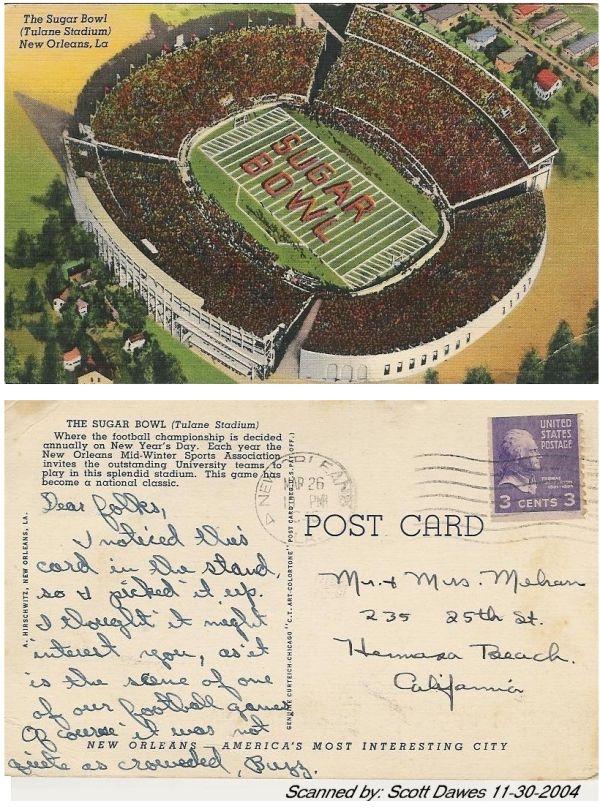 The Sugar Bowl
(Tulane Stadium)
New Orleans, La
SUGAR
BOWL
THE SUGAR BOWL (Tulane Stadium)
Where the football championship is decided
annually on New Year's Day. Each year the
New Orleans Mid-Winter Sports Association
invites the outstanding University teams to
play in this splendid stadium. This game has
become a national classic.
Dear folks,
I noticed this
card in the stand,
so I picked it up.
I thought it might
interest you, as it
is the scene of one
of our football games
Of course it was not
quite as crowded, Buzz.
A. HIRSCHWITZ, NEW ORLEANS, LA.
GENUINE CURTEICH-CHICAGO "C.T. ART-COLORTONE" POST CARD (REG. U.S. PAT. OFF.)
NEW ORLEANS
MAR 26
PM
LA
UNITED
STATES
POSTAGE
THOMAS
JEFFERSON
3 CENTS 3
POST CARD
Mr. & Mrs. Mehan
235 25th St.
Hermosa Beach.
California
NEW ORLEANS - AMERICA'S MOST INTERESTING CITY
Scanned by: Scott Dawes 11-30-2004